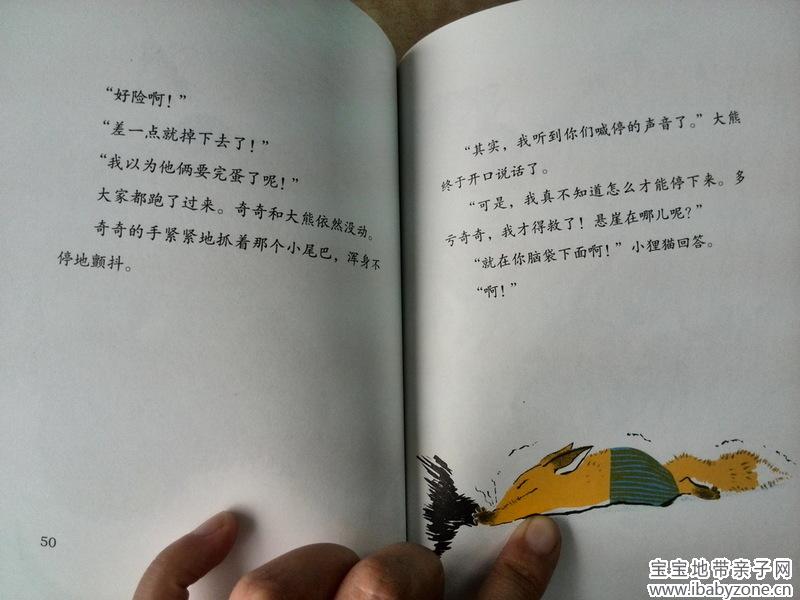 “好险啊！”
“差一点就掉下去了！”
“我以为他俩要完蛋了呢！”
大家都跑了过来。奇奇和大熊依然没动。
奇奇的手紧紧地抓着那个小尾巴，浑身不
停地颤抖。
50
“其实，我听到你们喊停的声音了。”大熊
终于开口说话了。
“可是，我真不知道怎么才能停下来。多
亏奇奇，我才得救了！悬崖在哪儿呢？”
“就在你脑袋下面啊！”小狸猫回答。
“啊！”
宝宝地带亲子网
www.ibabyzone.cn